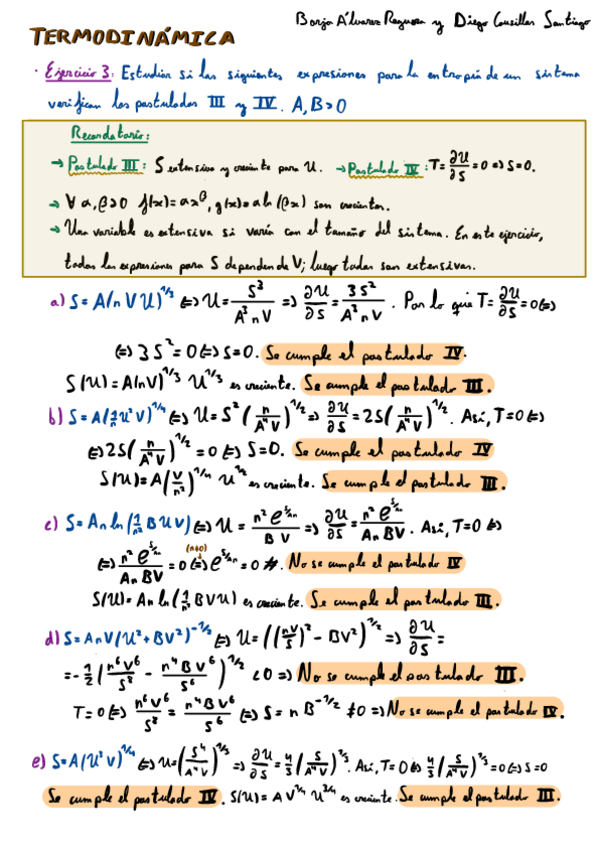 Borja Álvarez Reguera y Diego Santiago
TERMODINÁMICA
· Ejercicio 3: Estudiar si las siguientes expresiones para la entropía de un sistema
verifican los postulados III y IV. A, B>0
Recordatorio:
→ Postulado III: S extensiva y creciente para U. → Postulado IV: T= ∂U/∂S = 0 ⇔ S=0.
→ ∀ α, β>0 f(x)= αx^β, g(x)= α ln (βx) son crecientes.
→ Una variable es extensiva si varía con el tamaño del sistema. En este ejercicio,
todas las expresiones para S dependen de V; luego todas son extensivas.
a) S = A(n V U)^1/3 ⇔ U = S³/A³nV ⇒ ∂U/∂S = 3S²/A³nV . Por lo que T= ∂U/∂S = 0 ⇔
⇔ 3S² = 0 ⇔ S=0. Se cumple el postulado IV.
S(U) = A(nV)^1/3 U^1/3 es creciente. Se cumple el postulado III.
b) S = A(1/n U²V)^1/4 ⇔ U = S² (n/A⁴V)^1/2 ⇒ ∂U/∂S = 2S (n/A⁴V)^1/2 . Así, T=0 ⇔
⇔ 2S (n/A⁴V)^1/2 = 0 ⇔ S=0. Se cumple el postulado IV
S(U) = A(V/n²)^1/4 U^1/2 es creciente. Se cumple el postulado III.
c) S = A n ln (1/n² B U V) ⇔ U = n² e^S/An / BV ⇒ ∂U/∂S = n² e^S/An / An BV . Así, T=0 ⇔
⇔ n² e^S/An / An BV = 0 ⇔ (n≠0) e^S/An = 0 #. No se cumple el postulado IV
S(U) = A n ln (1/n² BVU) es creciente. Se cumple el postulado III.
d) S = A n V (U²+BV²)^-1/2 ⇔ U = ((nV/S)² - BV²)^1/2 ⇒ ∂U/∂S =
= - 1/2 (n⁶V⁶/S⁸ - n⁴BV⁶/S⁶)^1/2 < 0 ⇒ No se cumple el postulado III.
T = 0 ⇔ n⁶V⁶/S⁸ = n⁴BV⁶/S⁶ ⇔ S = n B^-1/2 ≠ 0 ⇒ No se cumple el postulado IV.
e) S = A(U³V)^1/4 ⇔ U = (S⁴/A⁴V)^1/3 ⇒ ∂U/∂S = 4/3 (S/A⁴V)^1/3 . Así, T=0 ⇔ 4/3 (S/A⁴V)^1/3 = 0 ⇔ S=0
Se cumple el postulado IV. S(U) = A V^1/4 U^3/4 es creciente. Se cumple el postulado III.